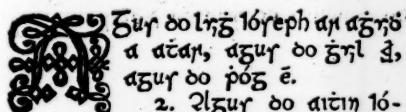 Agus do luiġ Ióseph ar aġuiḋ
a aṫar, agus do ġuil air,
agus do ṗóg é.
2. Agus do aiṫin Ió-